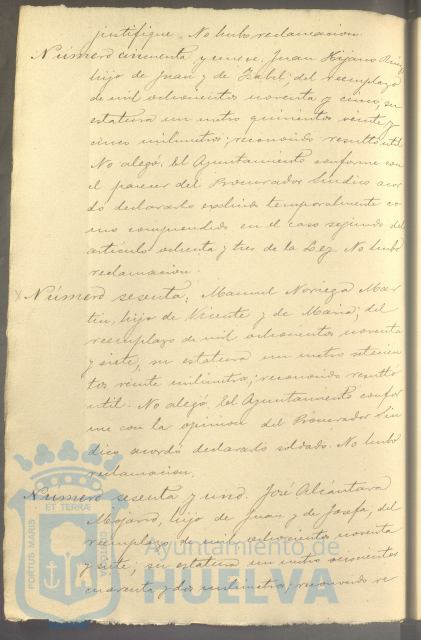 justifique. No hubo reclamacion.
Número cincuenta y nueve. Juan Hijano Ruiz,
hijo de Juan y de Isabel; del reemplazo
de mil ochocientos noventa y cinco, su
estatura un metro quinientos veinte y
cinco milimetros; reconocido resultó util
No alegó. El Ayuntamiento conforme con
el parecer del Procurador Sindico acor
dó declararlo excluido temporalmente co
mo comprendido en el caso segundo del
articulo ochenta y tres de la Ley. No hubo
reclamacion.
Número sesenta; Manuel Noriega Mar
tin, hijo de Vicente y de Maria; del
reemplazo de mil ochocientos noventa
y siete, su estatura un metro setecien
tos veinte milimetros; reconocido resultó
util. No alegó. El Ayuntamiento confor
me con la opinion del Procurador Sin
dico acordó declararlo soldado. No hubo
reclamacion.
Número sesenta y uno. José Alcántara
Mojarro, hijo de Juan y de Josefa; del
reemplazo de mil ochocientos noventa
y siete; su estatura un metro seiscientos
cuarenta y dos milimetros; reconocido re
PORTUS MARIS
ET TERRÆ
CUSTODIA
Ayuntamiento de
HUELVA